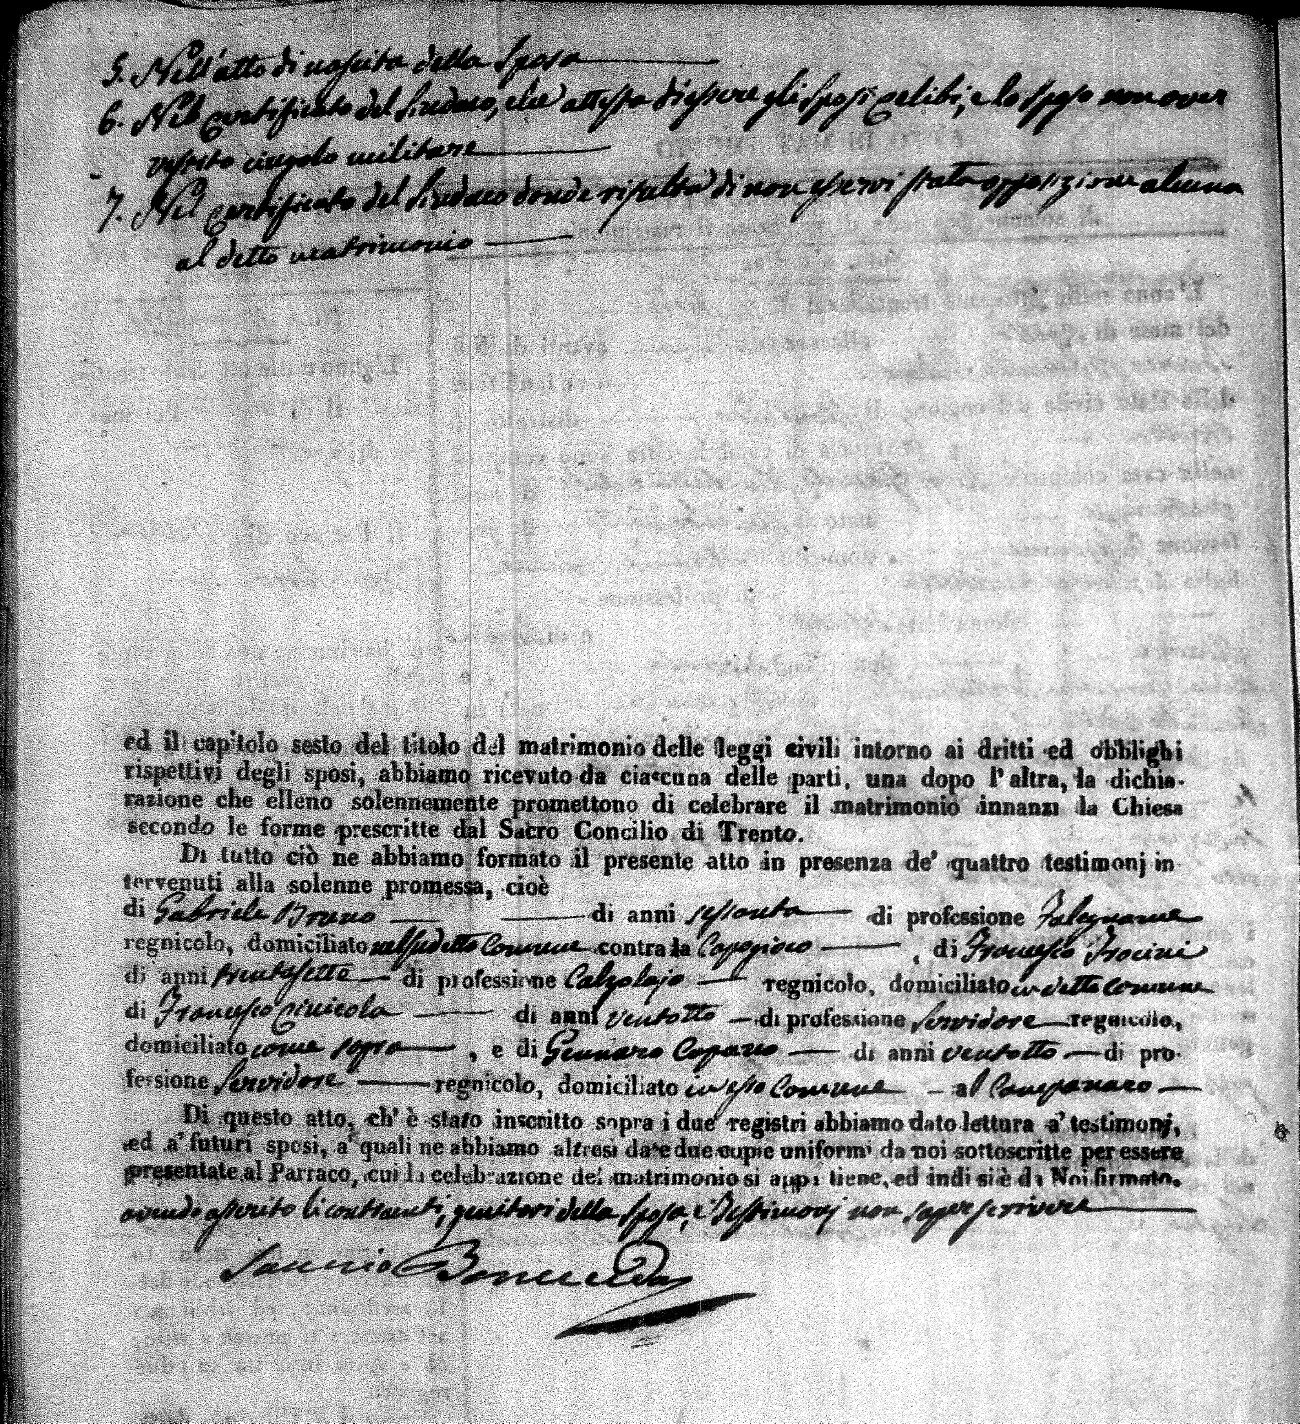 5. Nell'atto di nascita della Sposa
6. Nel certificato del Sindaco, che attesta d'essere gli Sposi celibi, e lo sposo non aver
vestito cingolo militare
7. Nel certificato del Sindaco donde risulta di non esservi stata opposizione alcuna
al detto matrimonio
ed il capitolo sesto del titolo del matrimonio delle leggi civili intorno ai dritti ed obblighi
rispettivi degli sposi, abbiamo ricevuto da ciascuna delle parti, una dopo l'altra, la dichia-
razione che elleno solennemente promettono di celebrare il matrimonio innanzi la Chiesa
secondo le forme prescritte dal Sacro Concilio di Trento.
Di tutto ciò ne abbiamo formato il presente atto in presenza de' quattro testimonj in
tervenuti alla solenne promessa, cioè
di Gabriele Bruno di anni sessanta di professione Falegname
regnicolo, domiciliato nel sudetto Comune contra la Capogioco , di Francesco Frocini
di anni trentasette di professione Calzolajo regnicolo, domiciliato in detto Comune
di Francesco Cinicola di anni ventotto di professione Servidore regnicolo,
domiciliato come sopra , e di Gennaro Caparro di anni ventotto di pro-
fessione Servidore regnicolo, domiciliato in esso Comune al Campanaro
Di questo atto, ch' è stato inscritto sopra i due registri abbiamo dato lettura a' testimonj,
ed a' futuri sposi, a' quali ne abbiamo altresì date due copie uniformi da noi sottoscritte per essere
presentate al Parraco, cui la celebrazione del matrimonio si appartiene, ed indi si è da Noi firmato,
avendo asserito li contraenti, genitori della sposa, e Testimonj non saper scrivere